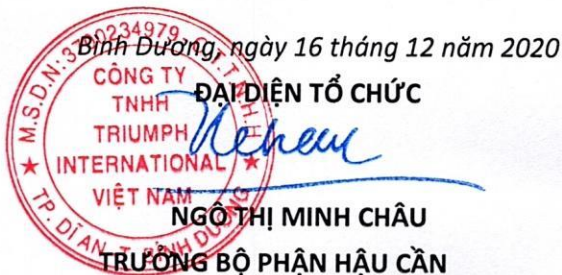 Bình Dương, ngày 16 tháng 12 năm 2020
ĐẠI DIỆN TỔ CHỨC
M.S.D.N: 3700234979 - C.T.T.N.H.H
CÔNG TY
TNHH
TRIUMPH
INTERNATIONAL
VIỆT NAM
TP. DĨ AN, T. BÌNH DƯƠNG
NGÔ THỊ MINH CHÂU
TRƯỞNG BỘ PHẬN HẬU CẦN